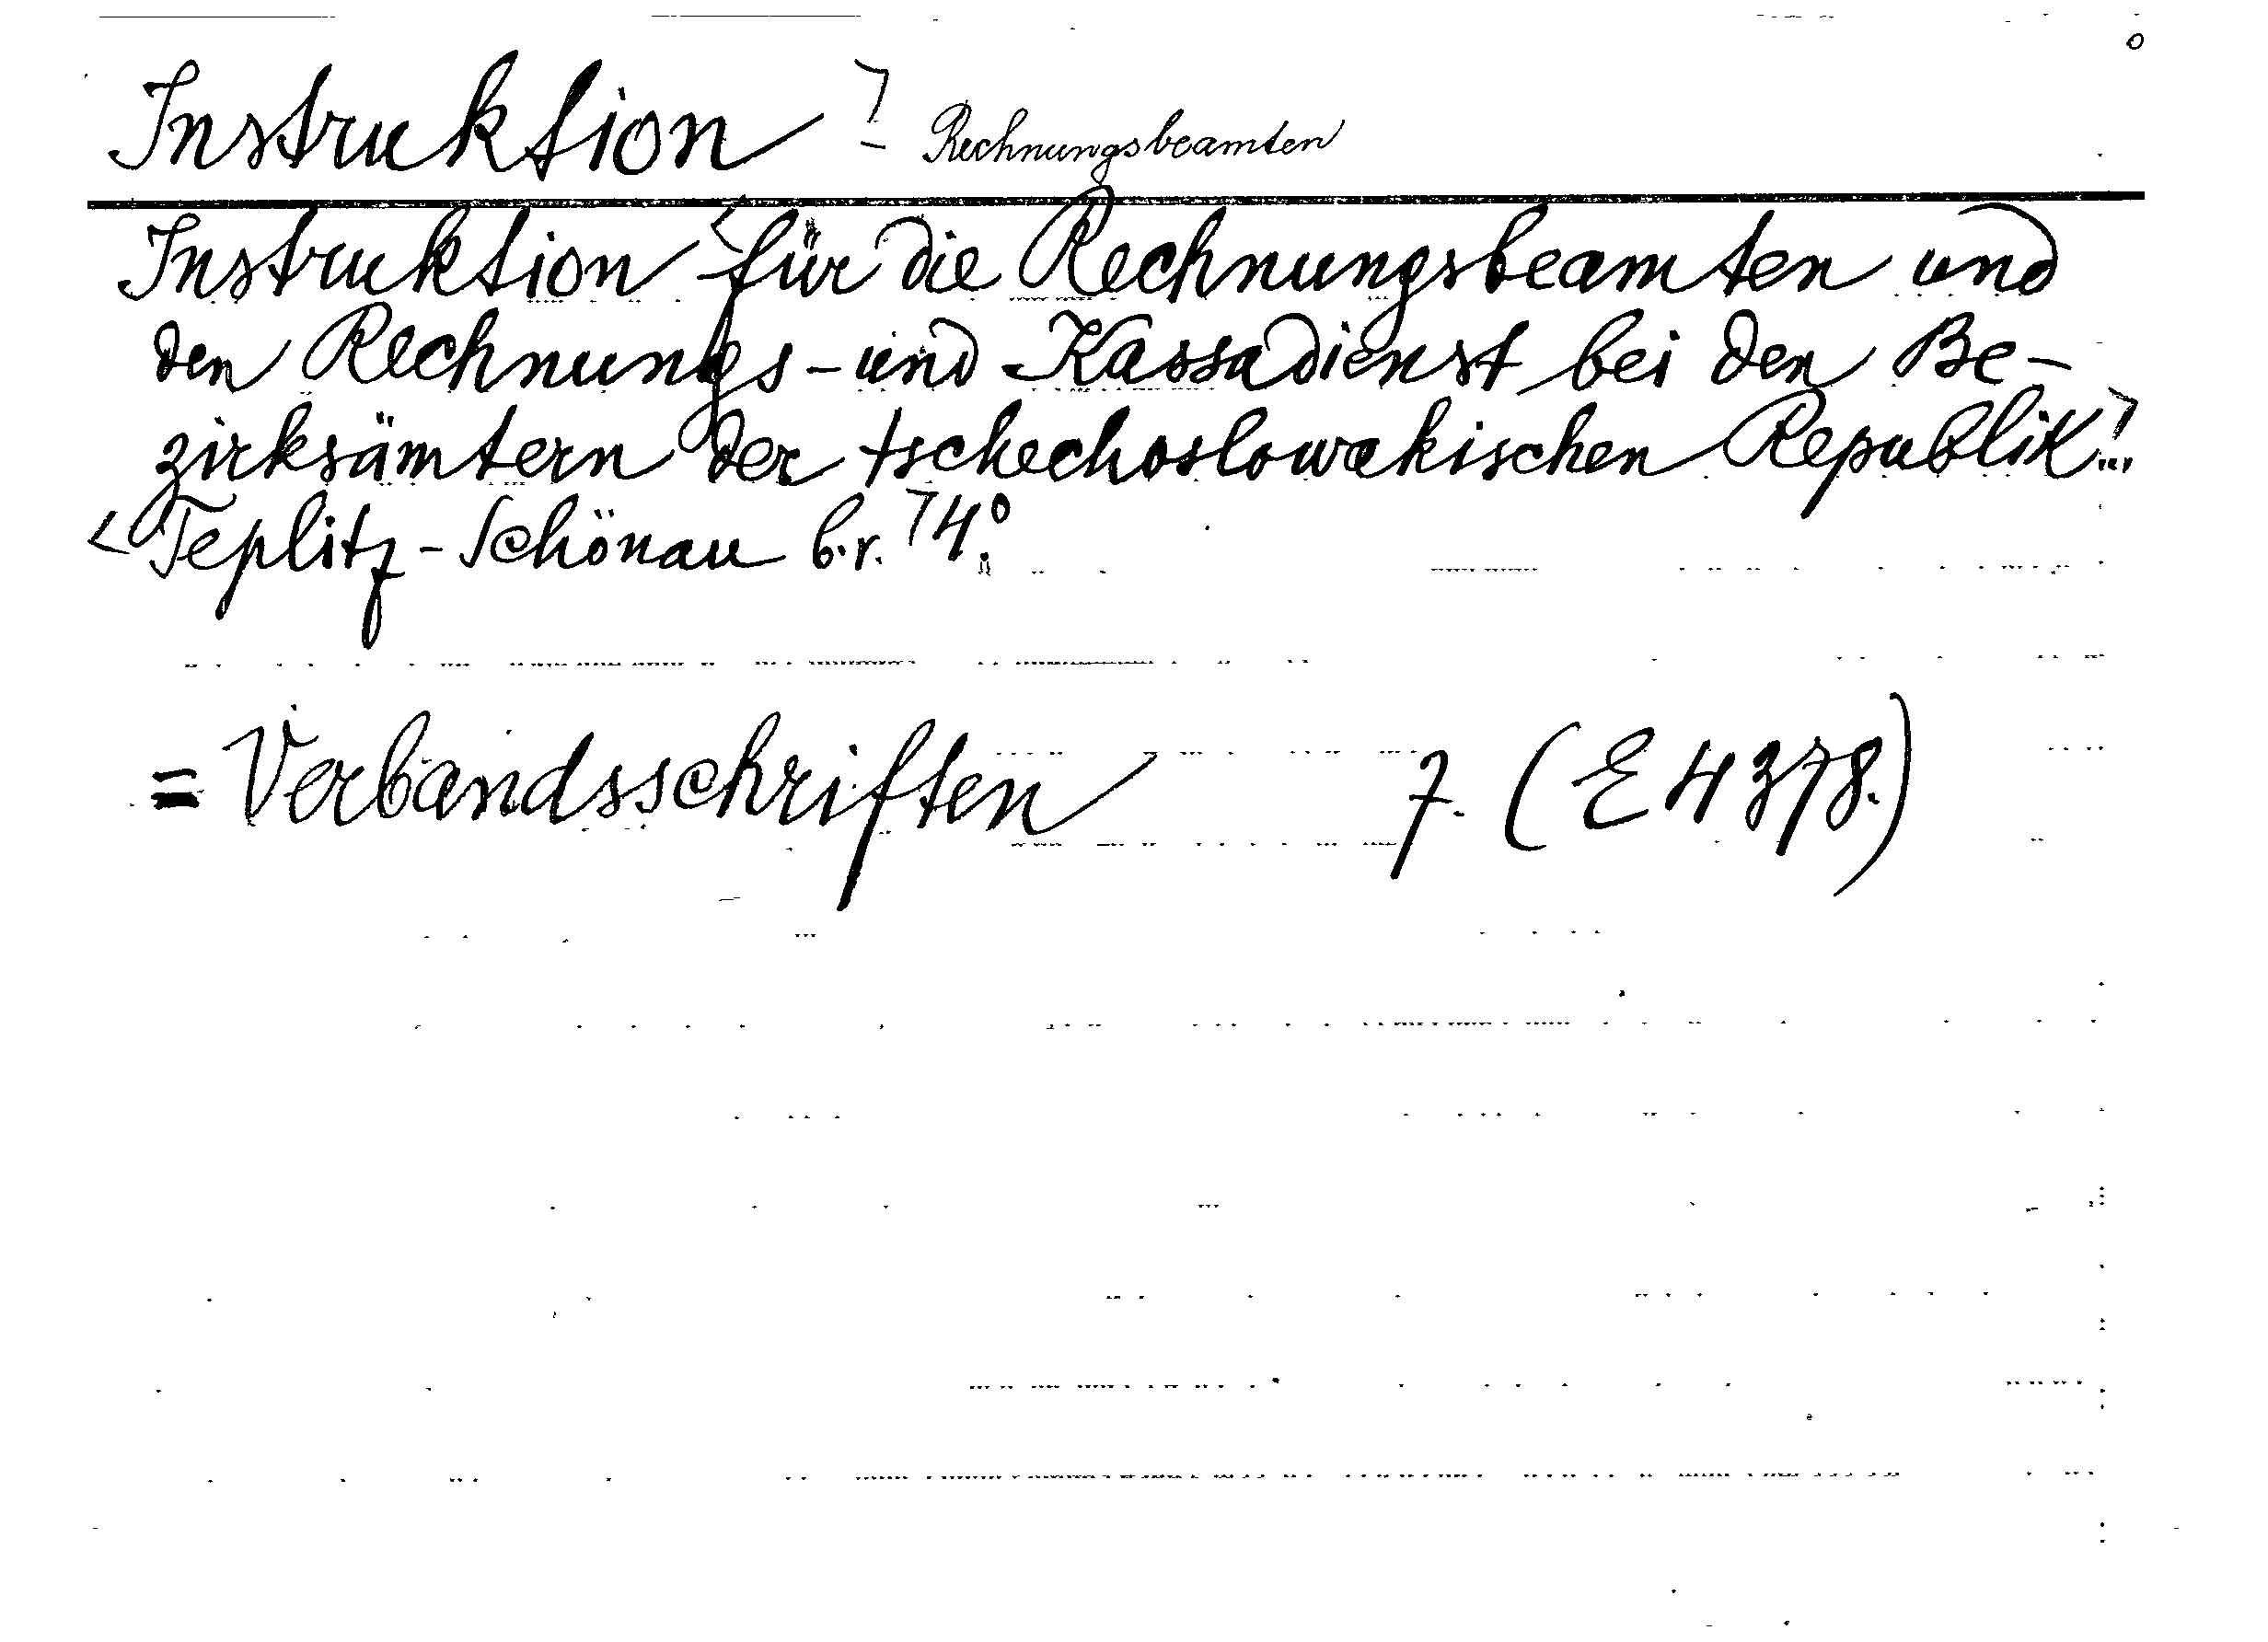 Instruktion - Rechnungsbeamten
Instruktion für die Rechnungsbeamten und
den Rechnungs- und Kassadienst bei den Be-
zirksämtern der tschechoslowakischen Republik...
Teplitz-Schönau b.r. 4°.
= Verbandsschriften 7. (E 4378.)